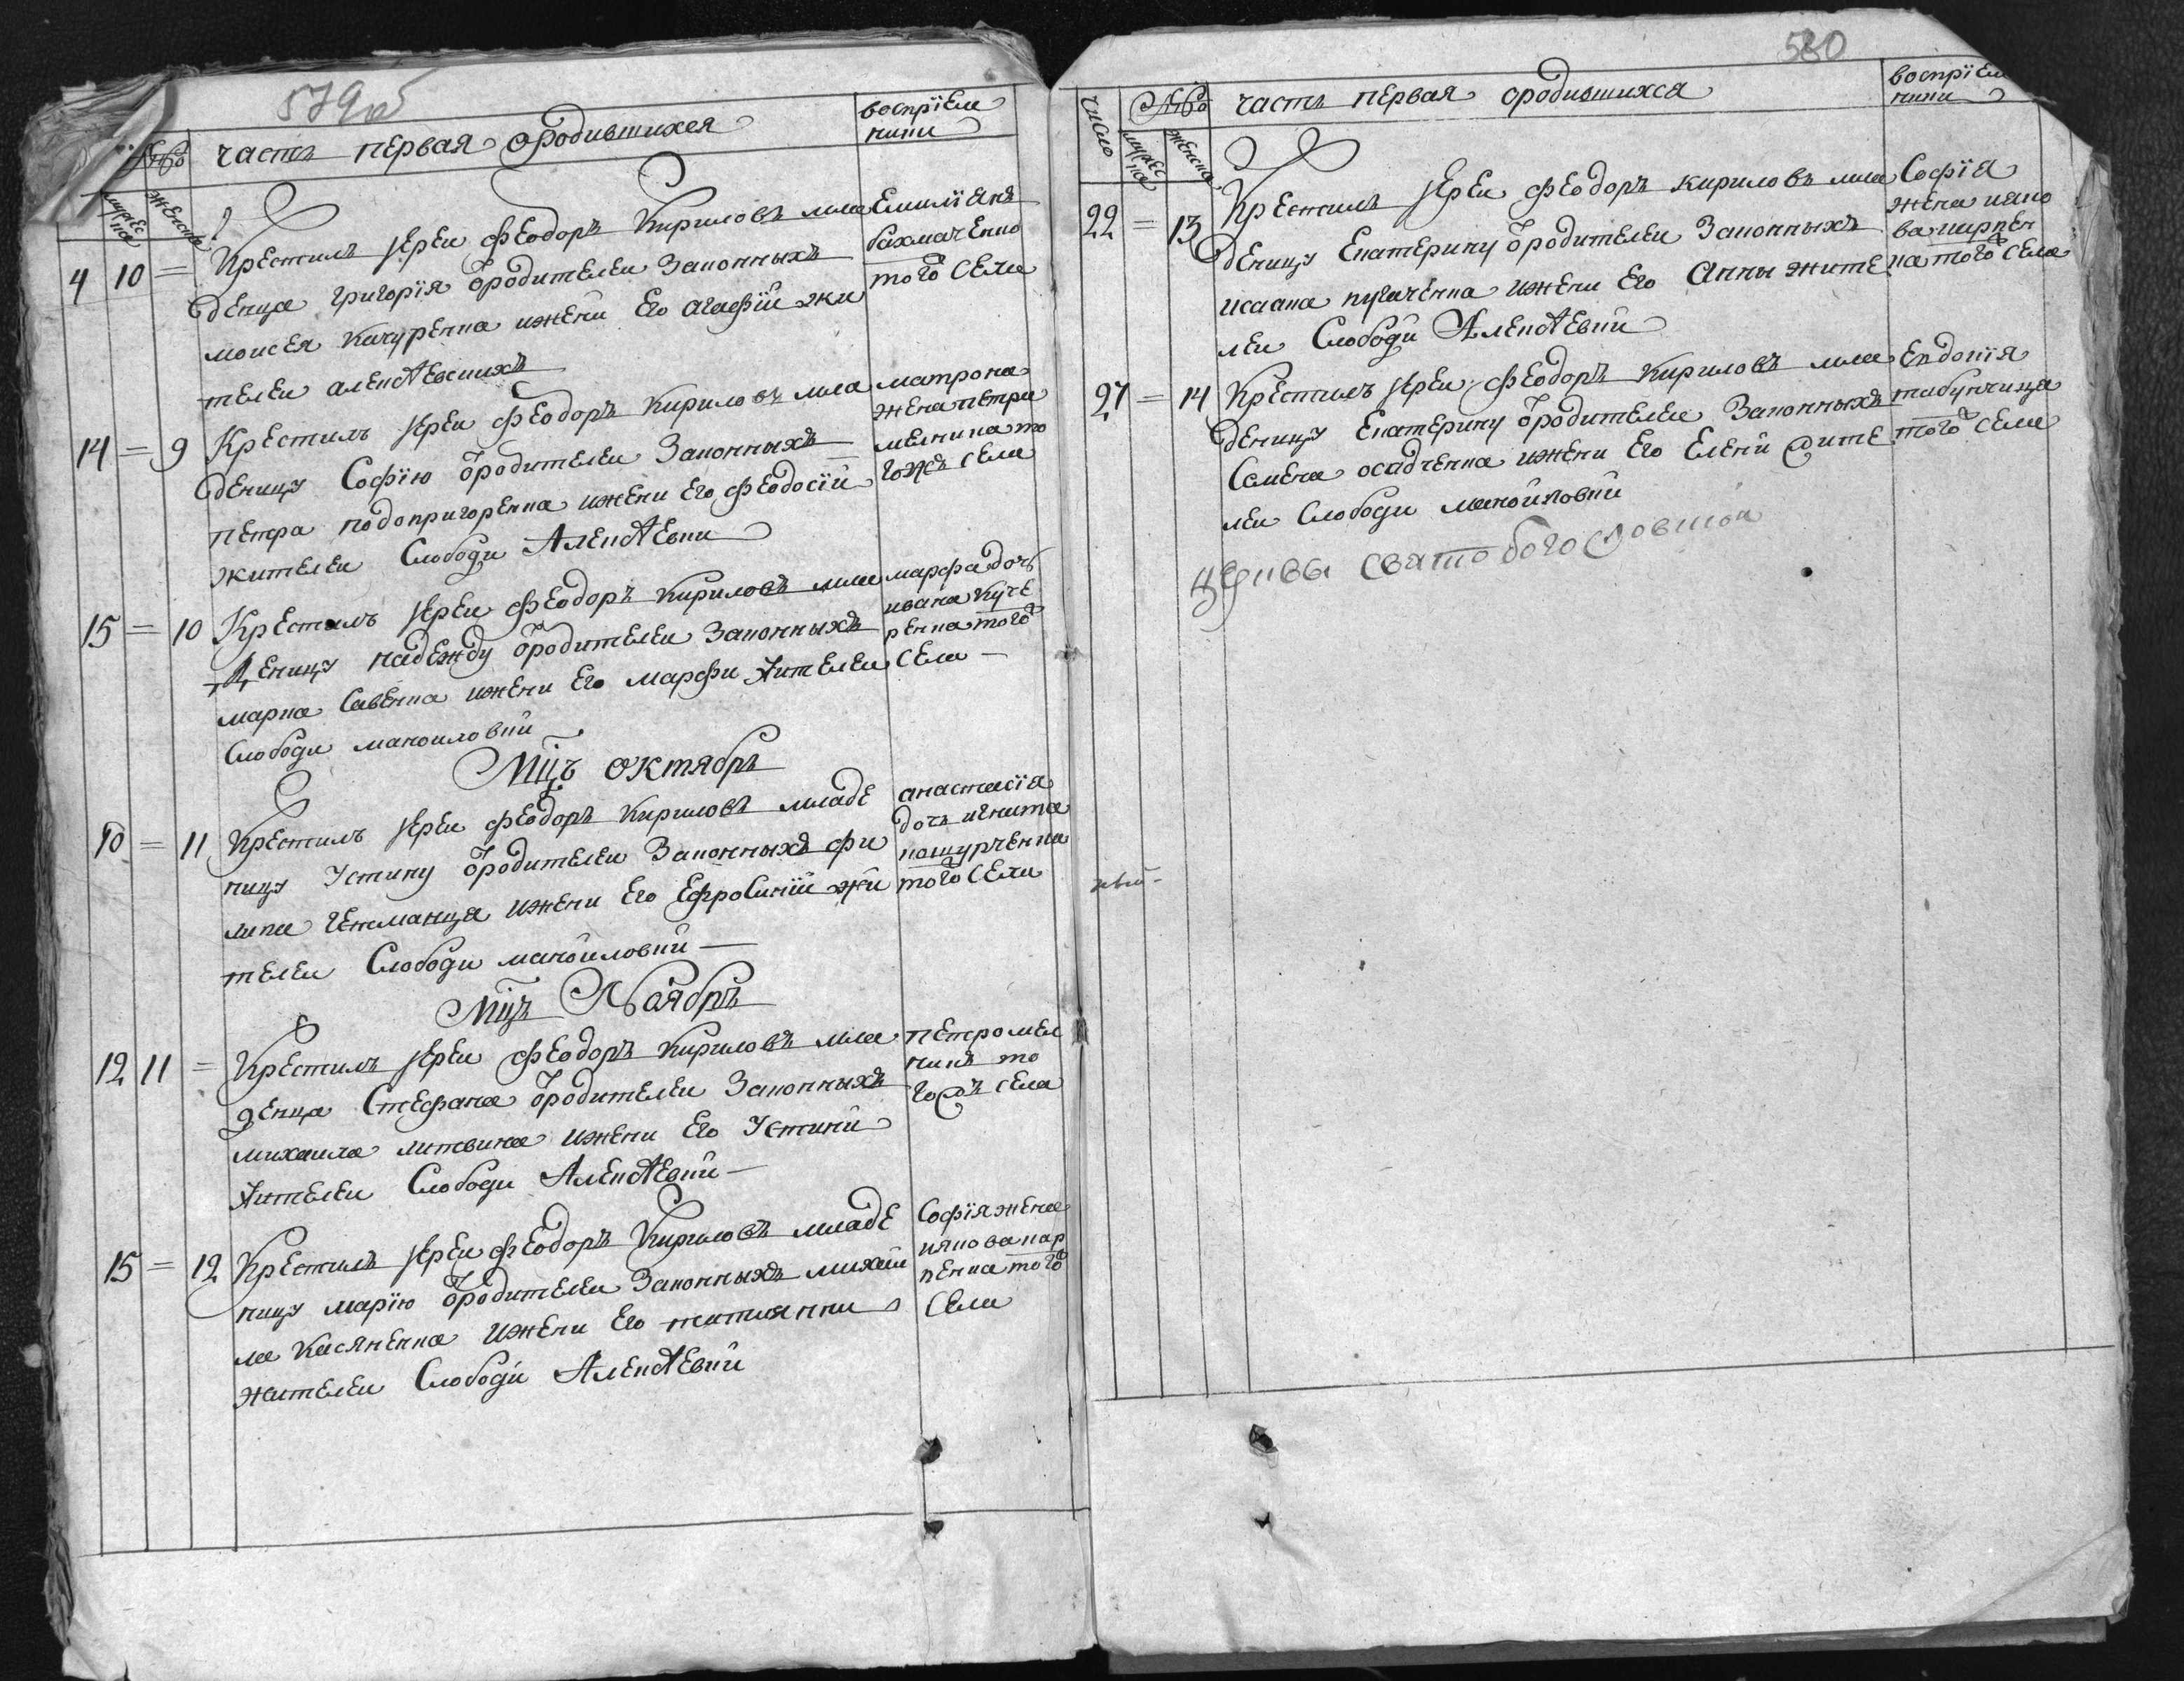 579об
№во часть первая ородившихся воспріем
ники
мужес
ка
женска
4 10 = Крестилъ іереи Феодоръ Кириловъ мла
денца григорія ѿродителеи Законныхъ
моисея Качуренка ижени Его агафїи жи
телеи алексѣевскихъ
Емиліянъ
бахмаченко
того села
14 = 9 Крестилъ іереи Феодоръ Кириловъ мла
деницу Софїю ѿродителеи Законныхъ
петра подопригоренка ижени Его феодосїи
жителеи Слободи Алексѣевки
матрона
жена петра
мелника то
гожъ села
15 = 10 Крестилъ іереи Феодоръ Кириловъ мла
деницу надежду ѿродителеи Законныхъ
марка Савенка ижени Его марфи жителеи
Слободи маноиловки
марфа дочь
ивана Куче
ренка того
села
Мцъ октябръ
10 = 11 Крестилъ іереи Феодоръ Кириловъ младе
ницу Устину ѿродителеи Законныхъ фи
липа Гекманца ижени Его Ефросинїи жи
телеи Слободи маноиловки
анастасїя
дочь игната
кошурченка
того села
Мцъ Ноябръ
12 11 = Крестилъ іереи Феодоръ Кириловъ мла
денца Стефана ѿродителеи Законныхъ
михаила литвина ижени Его Устини
жителеи Слободи Алексѣевки
петро мел
никъ то
гожъ села
15 = 12 Крестилъ іереи Феодоръ Кириловъ младе
ницу марїю ѿродителеи Законныхъ михаи
ла Касяненка ижени Его татиянни
жителеи Слободи Алексѣевки
Софїя жена
якова кар
пенка того
села
580
число №во часть первая ородившихся воспрїем
ники
мужес
ка
женска
22 = 13 Крестилъ іереи Феодоръ Кириловъ мла
деницу Екатерину ѿродителеи Законныхъ
исаака пугаченка ижени Его Анны жите
леи Слободи Алексѣевки
Софїя
жена яко
ва карпен
ка того села
27 = 14 Крестилъ іереи Феодоръ Кириловъ мла
деницу Екатерину ѿродителеи Законныхъ
Семена осадченка ижени Его Елени жите
леи Слободи маноиловки
Евдокїя
табунчица
того села
святобогословской